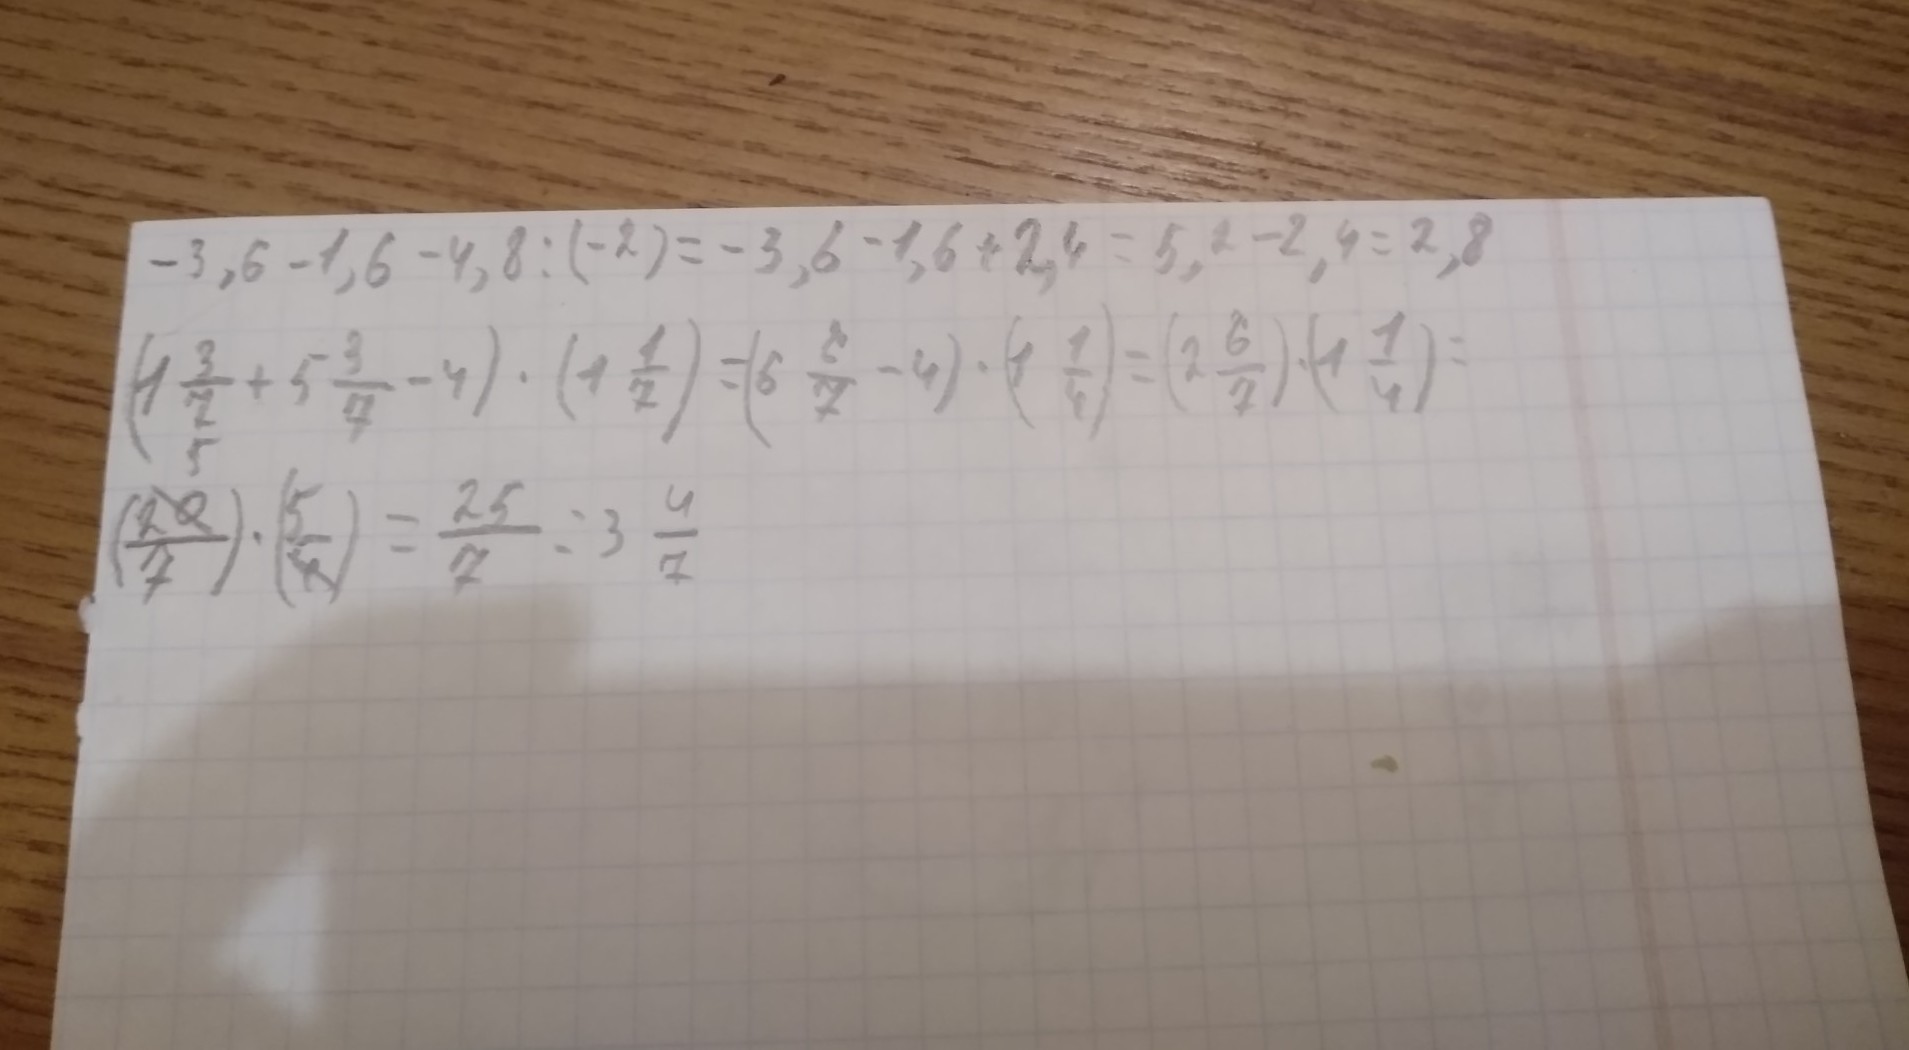 -3,6-1,6-4,8:(-2)=-3,6-1,6+2,4=5,2-2,4=2,8
(1 3/7 + 5 3/7 - 4) · (1 1/7) = (6 6/7 - 4) · (1 1/4) = (2 6/7) · (1 1/4) =
5
(20/7) · (5/4) = 25/7 = 3 4/7